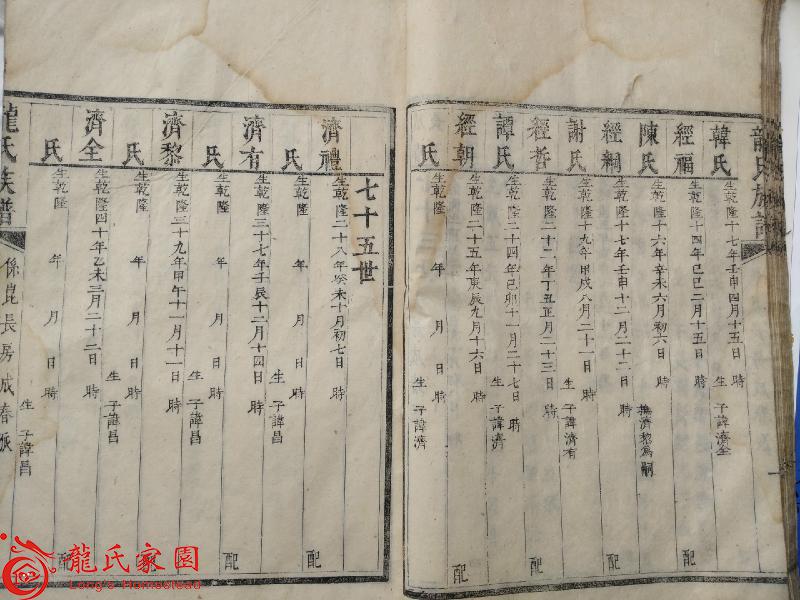 龍氏族譜
韓氏 生乾隆十七年壬申四月十五日 時 生 子諱濟全
經福 生乾隆十四年己巳二月十五日 時 配
陳氏 生乾隆十六年辛未六月初六日 時 撫濟黎為嗣
經綱 生乾隆十七年壬申十二月二十二日 時 配
謝氏 生乾隆十九年甲戌八月二十一日 時 生 子諱濟有
經哲 生乾隆二十二年丁丑正月二十三日 時 配
譚氏 生乾隆二十四年己卯十一月二十七日 時 生 子諱濟
經朝 生乾隆二十五年庚辰九月十六日 時 配
氏 生乾隆 年 月 日 時 生 子諱濟
七十五世
濟禮 生乾隆二十八年癸未十月初七日 時 配
氏 生乾隆 年 月 日 時 生 子諱昌
濟有 生乾隆三十七年壬辰十二月十四日 時 配
氏 生乾隆 年 月 日 時 生 子諱昌
濟黎 生乾隆三十九年甲午十一月十一日 時
氏 生乾隆 年 月 日 時 生 子諱昌
濟全 生乾隆四十年乙未三月二十二日 時 配
氏 生乾隆 年 月 日 時 生 子諱昌
龍氏族譜 係崑長房成春派
龍氏家園
Long's Homestead